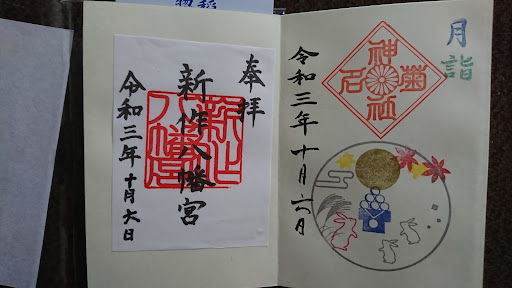 月詣
菊名神社
令和三年十月六日
奉拝
新作八幡宮
新作八幡宮
令和三年十月六日